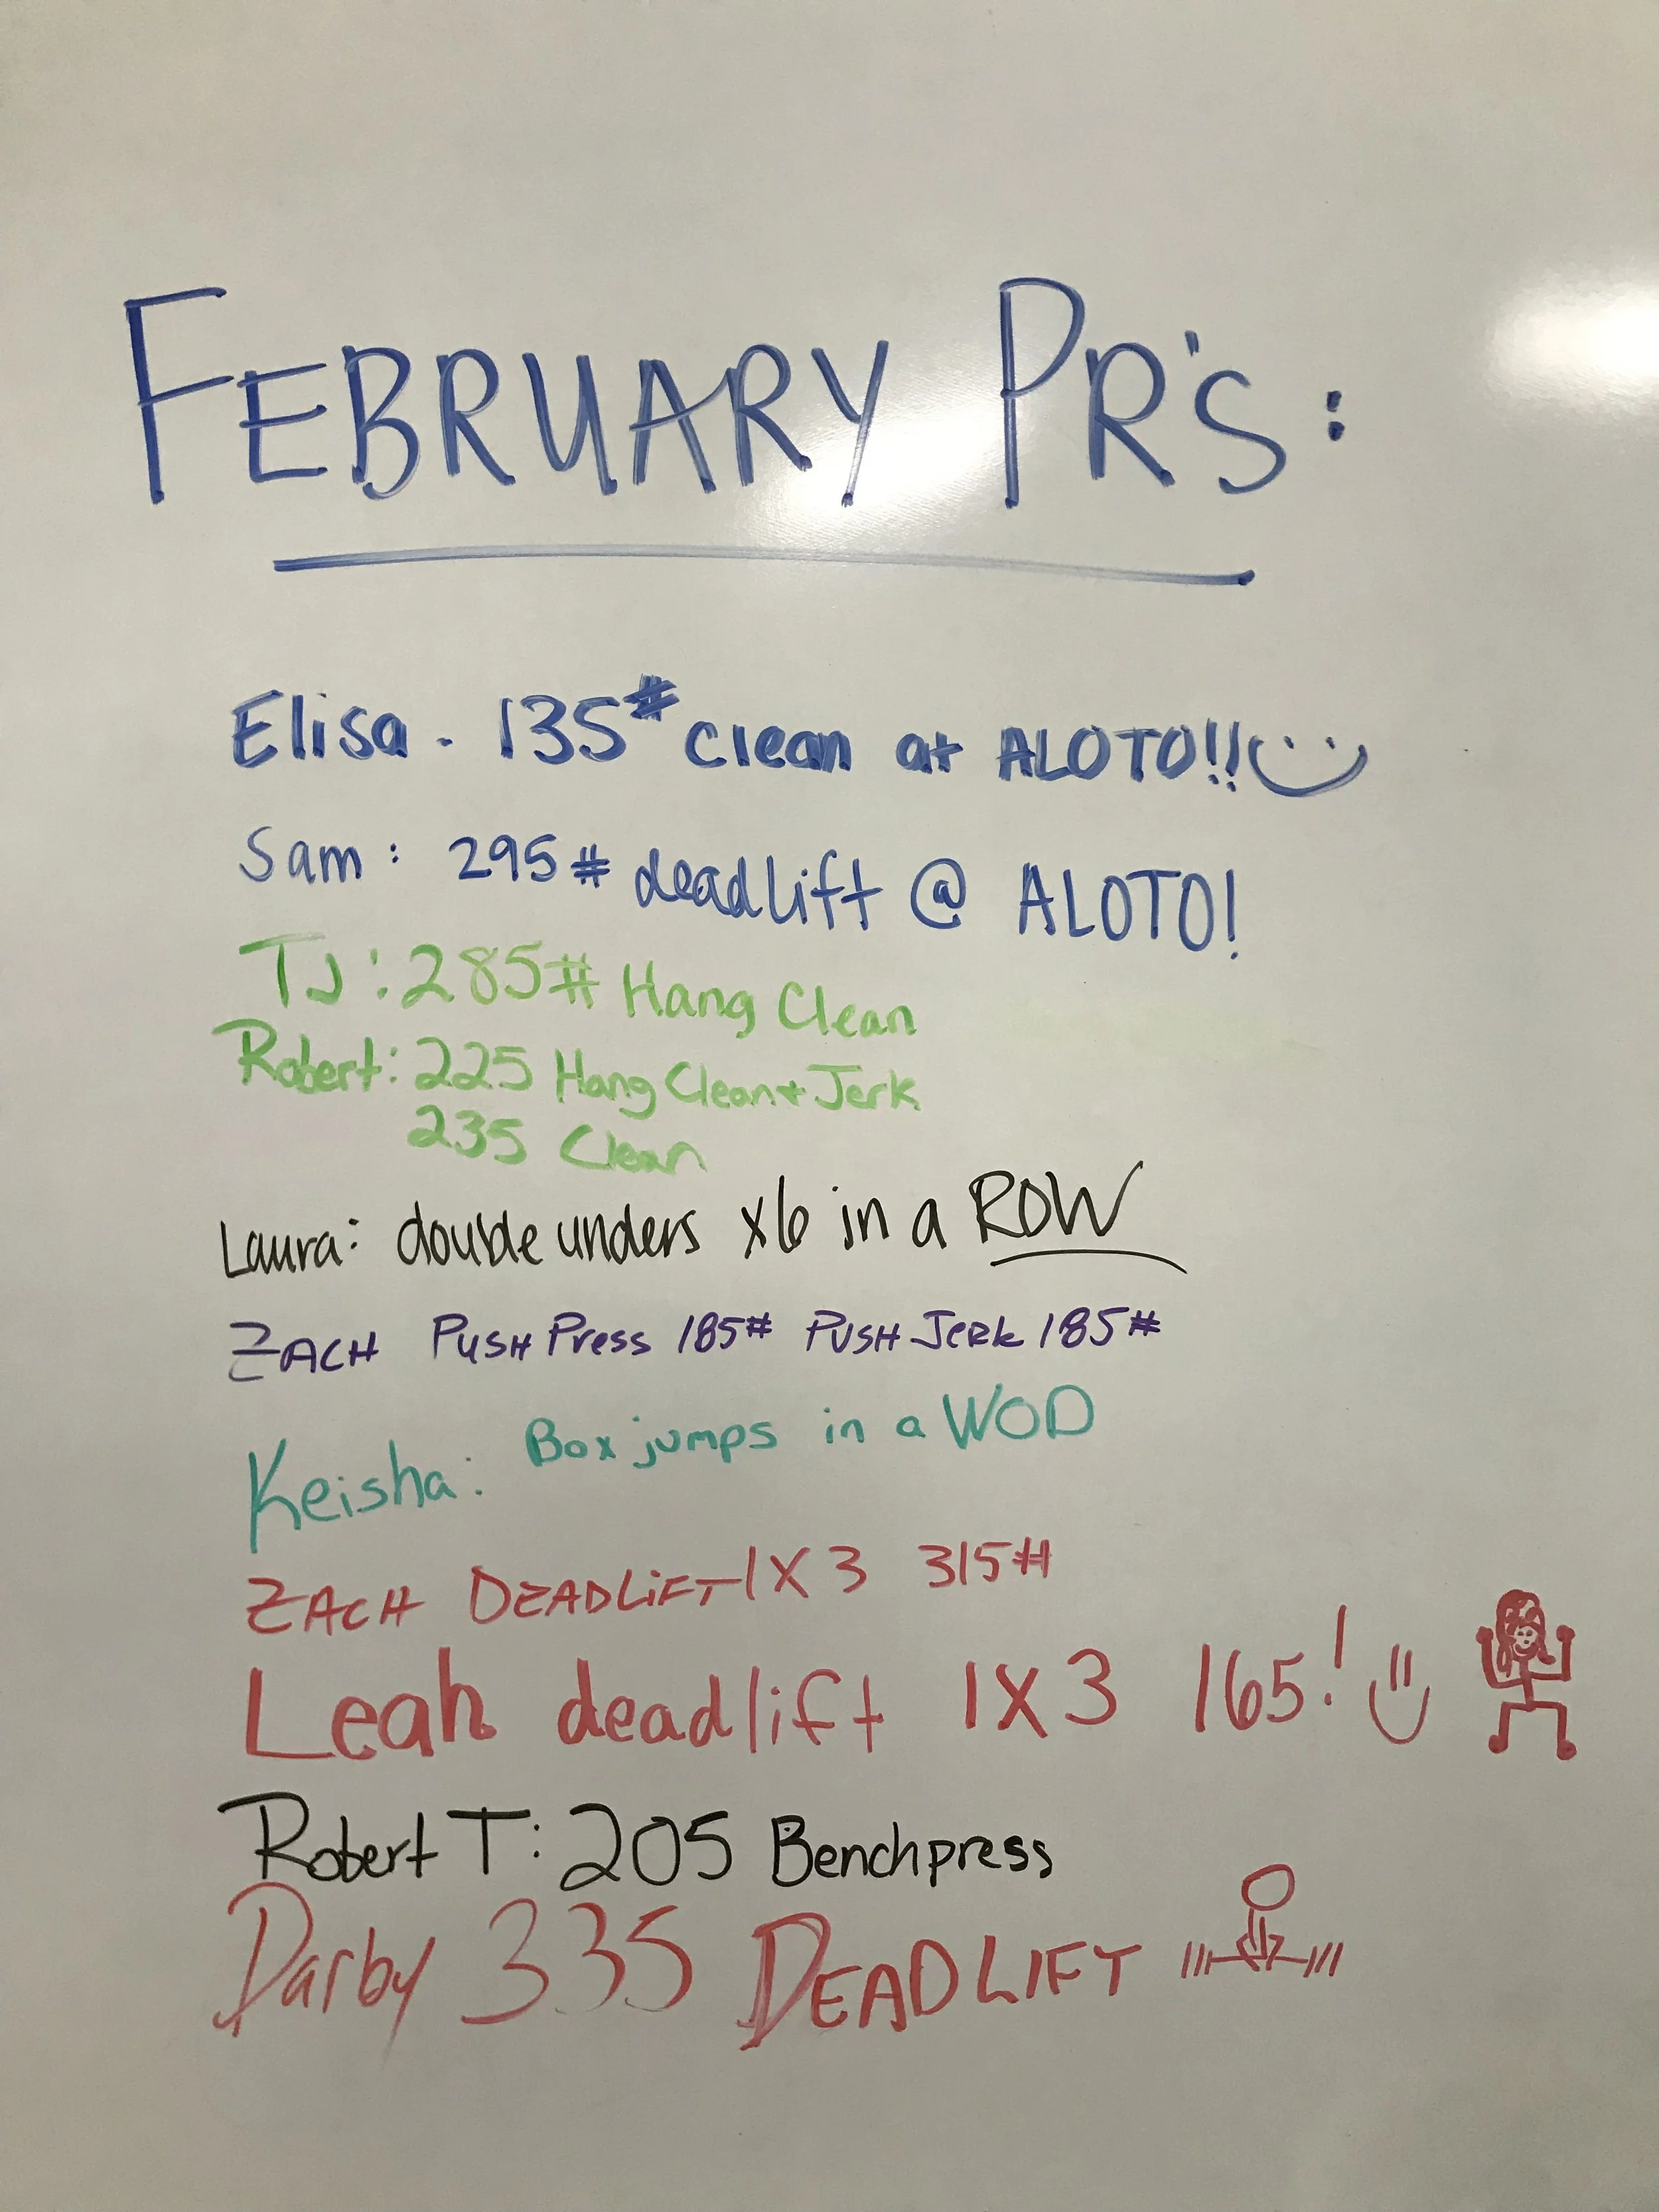 FEBRUARY PR'S:
Elisa - 135# clean at ALOTO!!
Sam: 295# deadlift @ ALOTO!
TJ: 285# Hang Clean
Robert: 225 Hang Clean + Jerk
235 Clean
Laura: double unders x6 in a ROW
ZACH PUSH Press 185# PUSH JERK 185#
Keisha: Box jumps in a WOD
ZACH DEADLiFT 1X3 315#
Leah deadlift 1X3 165!
Robert T: 205 Benchpress
Darby 335 DEADLIFT